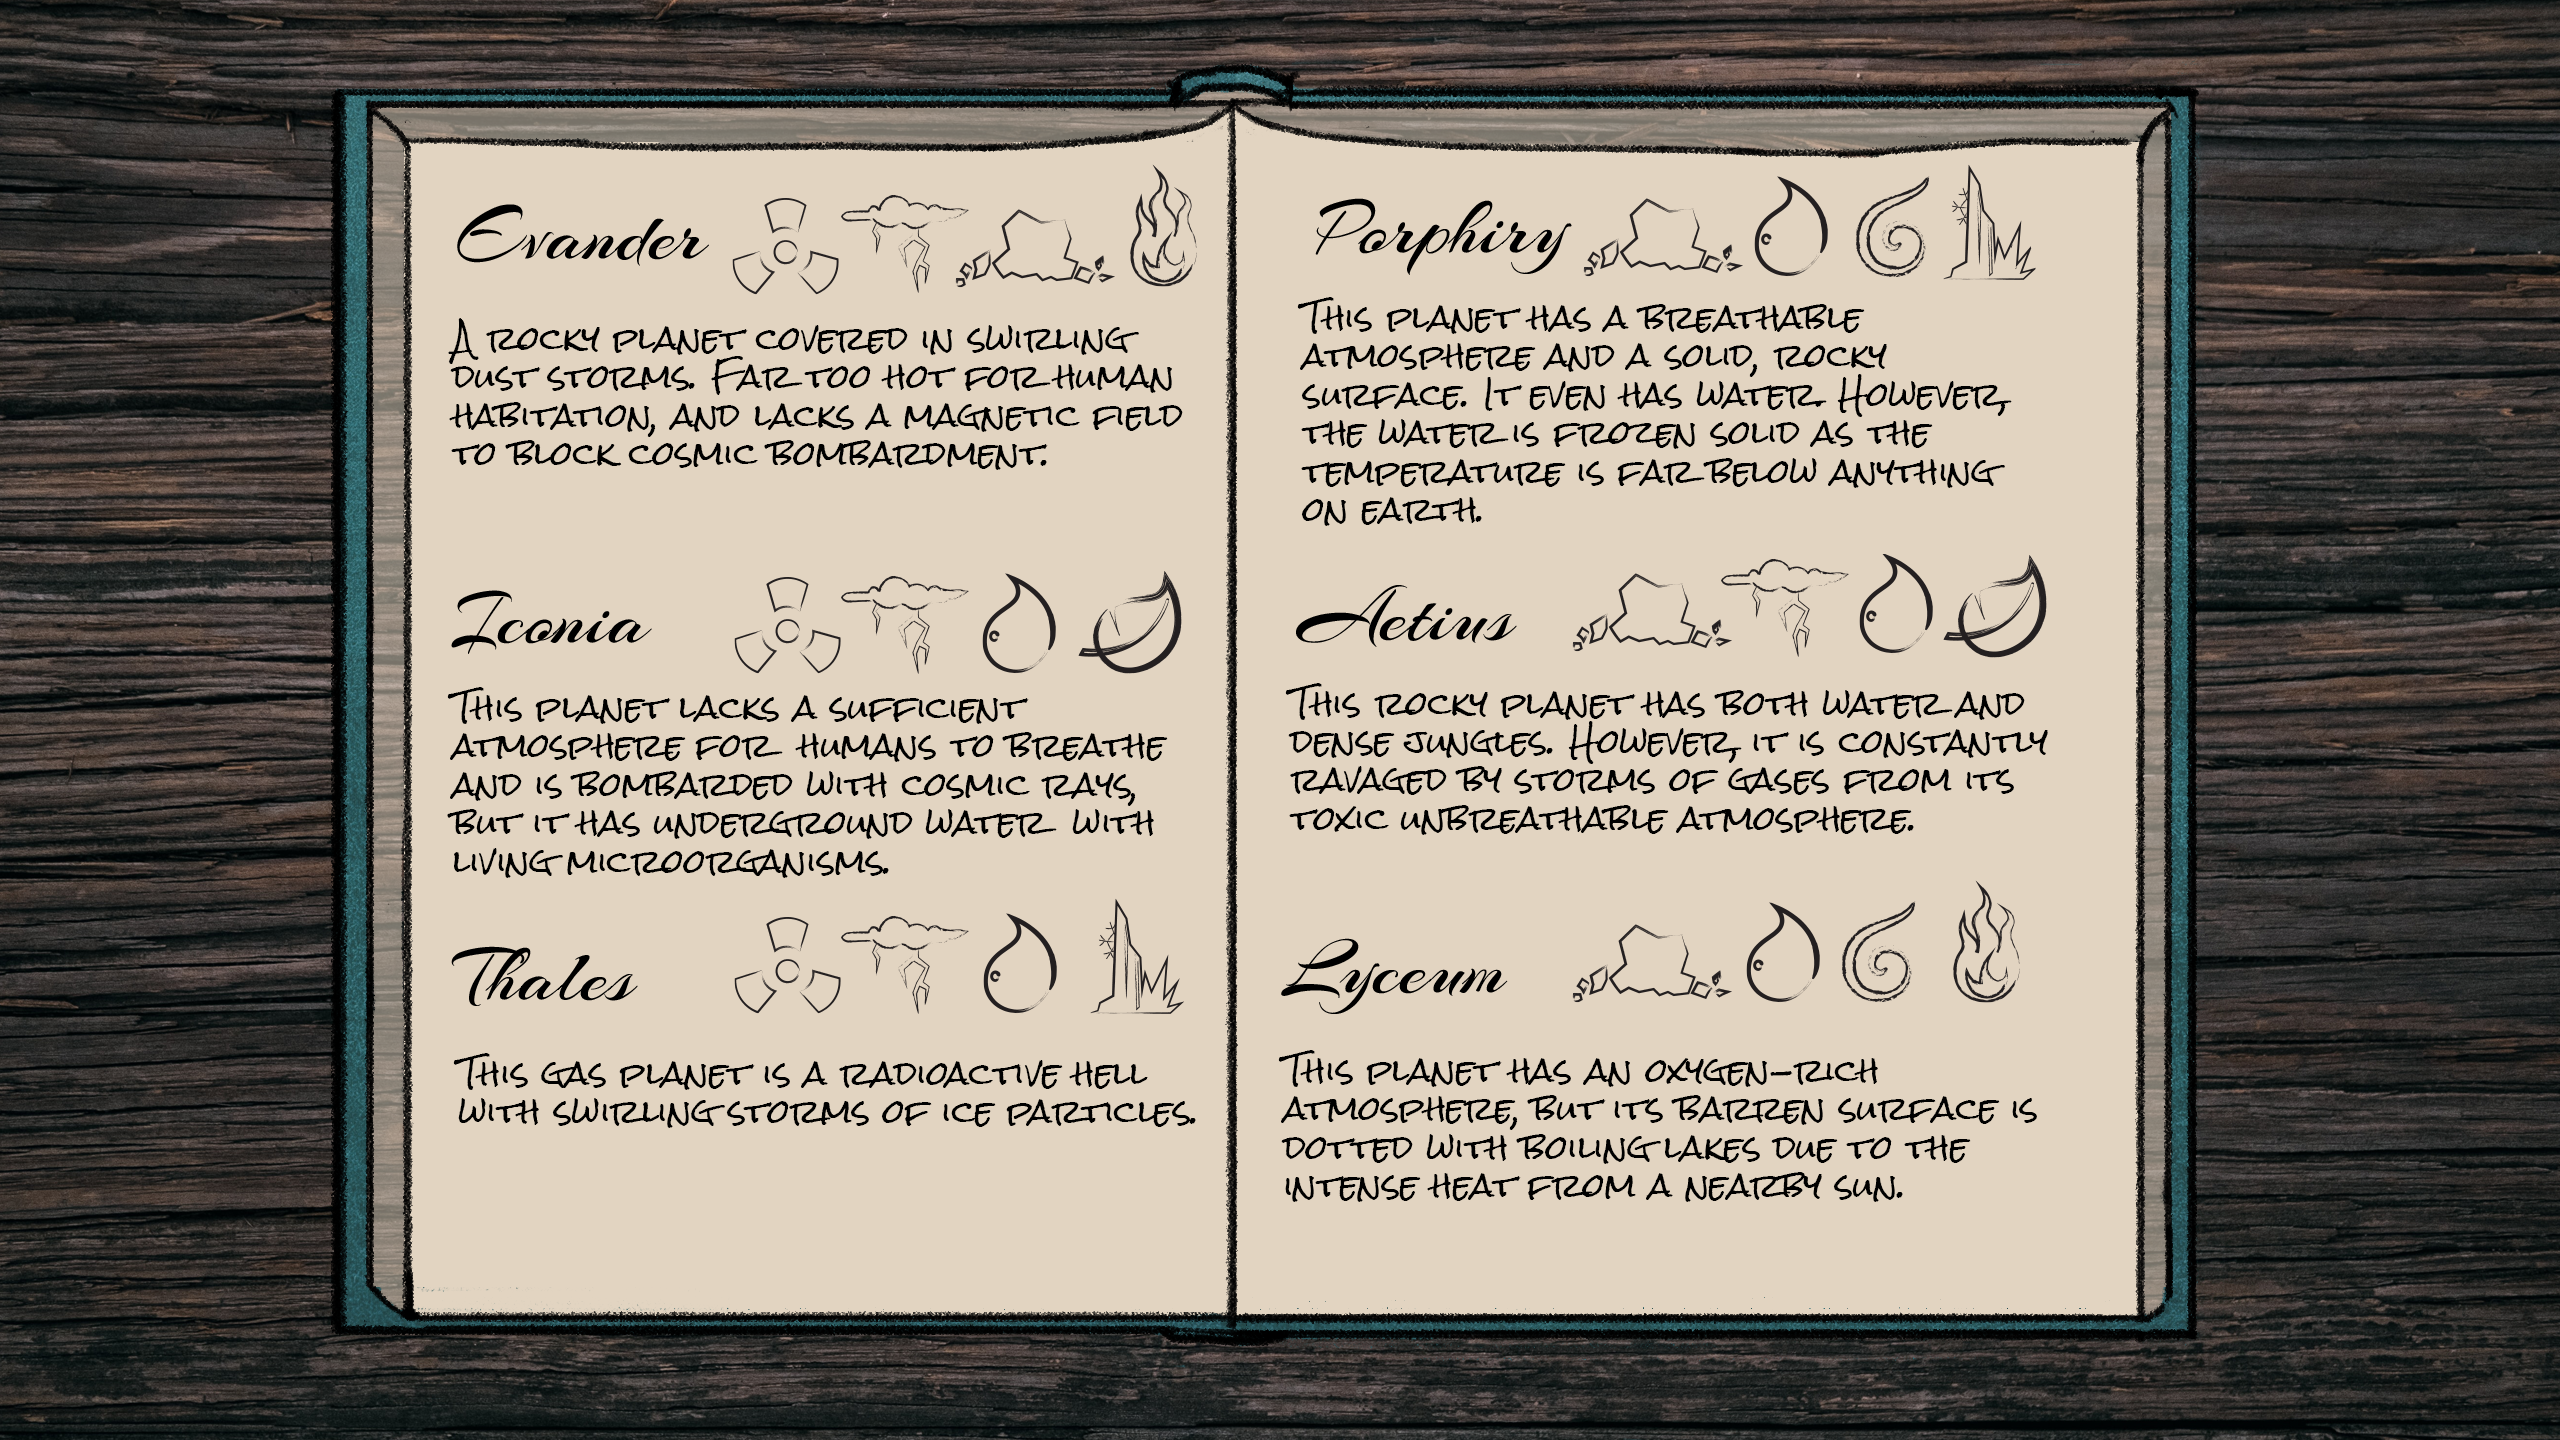 Evander
A rocky planet covered in swirling
dust storms. Far too hot for human
habitation, and lacks a magnetic field
to block cosmic bombardment.
Iconia
This planet lacks a sufficient
atmosphere for humans to breathe
and is bombarded with cosmic rays,
but it has underground water with
living microorganisms.
Thales
This gas planet is a radioactive hell
with swirling storms of ice particles.
Porphiry
This planet has a breathable
atmosphere and a solid, rocky
surface. It even has water. However,
the water is frozen solid as the
temperature is far below anything
on earth.
Aetius
This rocky planet has both water and
dense jungles. However, it is constantly
ravaged by storms of gases from its
toxic unbreathable atmosphere.
Lyceum
This planet has an oxygen-rich
atmosphere, but its barren surface is
dotted with boiling lakes due to the
intense heat from a nearby sun.